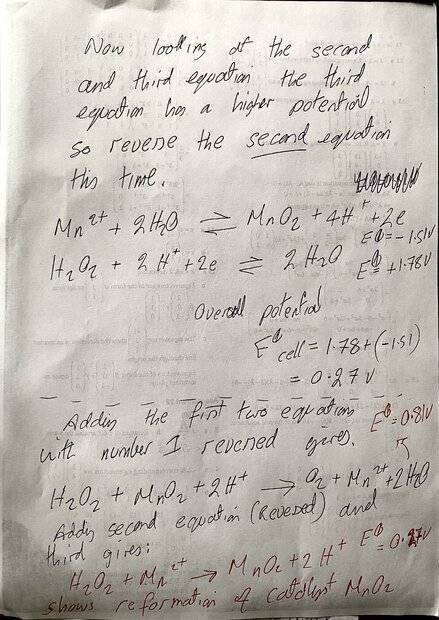 Now looking at the second
and third equation the third
equation has a higher potential
so reverse the second equation
this time.
Mn²⁺ + 2H₂O ⇌ MnO₂ + 4H⁺ + 2e
E⦵ = -1.51V
H₂O₂ + 2H⁺ + 2e ⇌ 2H₂O E⦵ = +1.78V
Overall potential
E⦵ cell = 1.78 + (-1.51)
= 0.27V
Adding the first two equations E⦵ = 0.81V
with number 1 reversed gives.
H₂O₂ + MnO₂ + 2H⁺ → O₂ + Mn²⁺ + 2H₂O
Adding second equation (Reversed) and
third gives:
H₂O₂ + Mn²⁺ → MnO₂ + 2H⁺ E⦵ = 0.27V
shows reformation of catalyst MnO₂